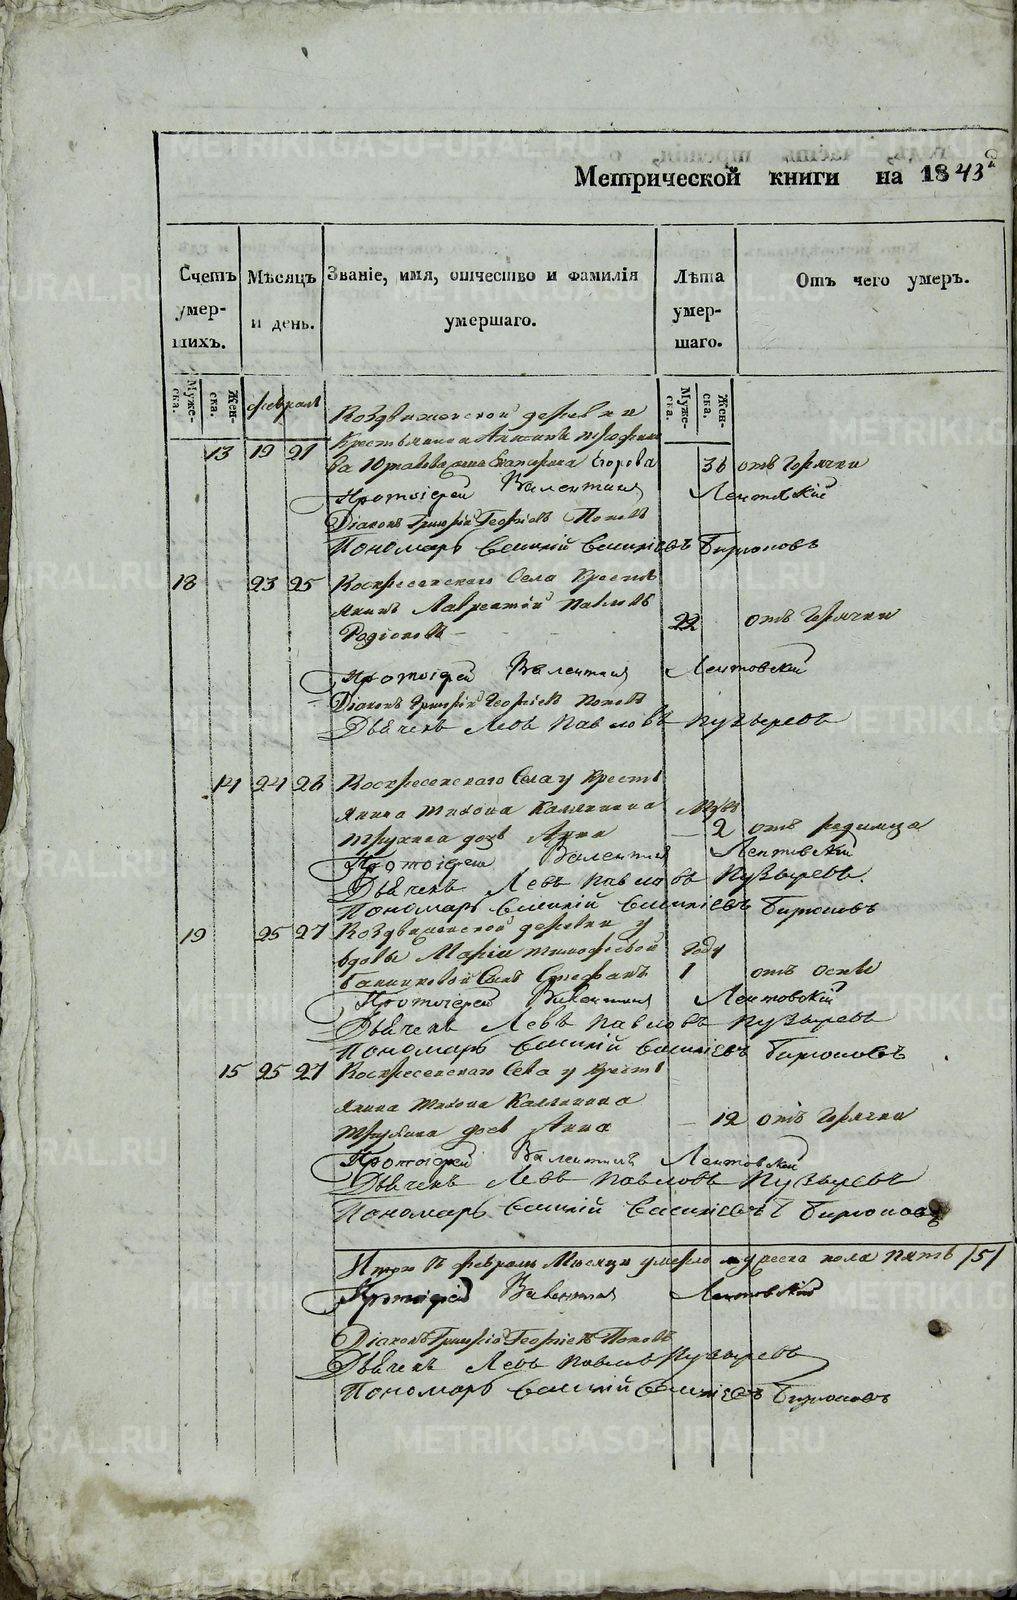 Метрической книги на 1843 г
Счетъ умер- шихъ.
Мѣсяцъ и день.
Званіе, имя, отчество и фамилія умершаго.
Лѣта умер- шаго.
Отъ чего умеръ.
Муже- ска.
Жен- ска.
Февраль
Муже- ска.
Жен- ска.
Воздвиженской деревни
13 19 21 Крестьянина
ва жена Екатерина Егорова 36 отъ горячки
Протоіерей Валентинъ Лентовскій
Діаконъ Григорій Георгіевъ Поповъ
Пономарь Василій Василіевъ Бирюковъ
18 23 25 Воскресенскаго Села Кресть
янинъ Лаврентій Павловъ
Родіоновъ 22 отъ горячки
Протоіерей Валентинъ Лентовскій
Діаконъ Григорій Георгіевъ Поповъ
Дьячекъ Левъ Павловъ Пузыревъ
14 24 26 Воскресенскаго Села у Кресть
янина Тихона Каллинина
дочь Анна 2 отъ родимца
Протоіерей Валентинъ Лентовскій
Дьячекъ Левъ Павловъ Пузыревъ.
Пономарь Василій Василіевъ Бирюковъ
19 25 27 Воздвиженской деревни у
вдовы Маріи Тимофеевой года
Сынъ Стефанъ 1 отъ оспы
Протоіерей Валентинъ Лентовскій
Дьячекъ Левъ Павловъ Пузыревъ
Пономарь Василій Василіевъ Бирюковъ
15 25 27 Воскресенскаго Села у Кресть
янина Тихона Каллинина
дочь Анна 12 отъ горячки
Протоіерей Валентинъ Лентовскій
Дьячекъ Левъ Павловъ Пузыревъ
Пономарь Василій Василіевъ Бирюковъ
Итого въ февралѣ Месяце умерло мужеска пола пять /5/
Протоіерей Валентинъ Лентовскій
Діаконъ Григорій Георгіевъ Поповъ
Дьячекъ Левъ Павловъ Пузыревъ
Пономарь Василій Василіевъ Бирюковъ
METRIKI.GASO-URAL.RU